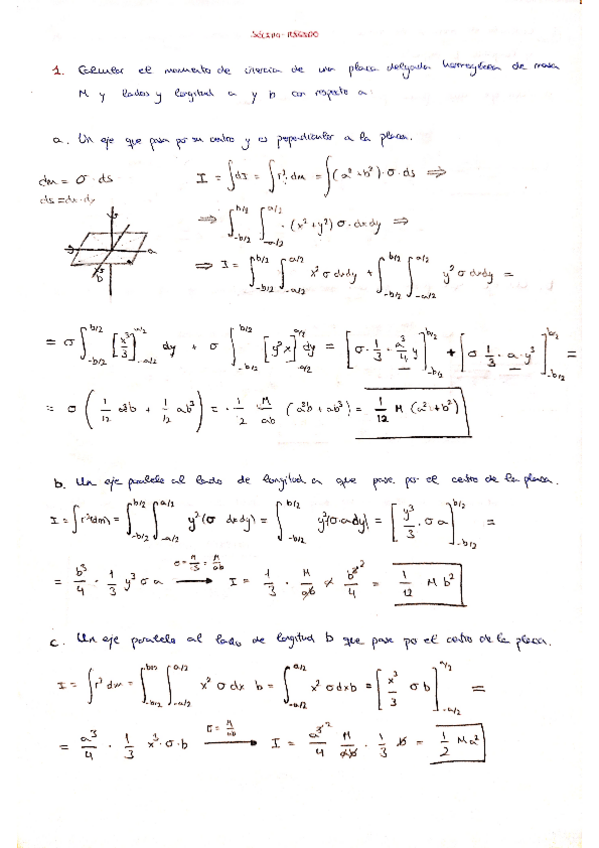 SÓLIDO - RÍGIDO
1. Calcular el momento de inercia de una placa delgada homogénea de masa
M y lados y longitud a y b con respecto a:
a. Un eje que pasa por su centro y es perpendicular a la placa.
dm = σ · ds
ds = dx · dy
I = ∫dI = ∫r² dm = ∫(a² + b²) · σ · ds ⇒
⇒ ∫_{-b/2}^{b/2} ∫_{-a/2}^{a/2} · (x² + y²) σ · dx dy ⇒
⇒ I = ∫_{-b/2}^{b/2} ∫_{-a/2}^{a/2} x² σ dx dy + ∫_{-b/2}^{b/2} ∫_{-a/2}^{a/2} y² σ dx dy =
a
b
= σ ∫_{-b/2}^{b/2} [x³/3]_{-a/2}^{a/2} dy + σ ∫_{-b/2}^{b/2} [y² x]_{-a/2}^{a/2} dy = [σ · 1/3 · a³/4 y]_{-b/2}^{b/2} + [σ 1/3 · a · y³]_{-b/2}^{b/2} =
= σ (1/12 a³b + 1/12 ab³) = · 1/2 M/ab (a³b + ab³) = 1/12 M (a² + b²)
b. Un eje paralelo al lado de longitud a que pase por el centro de la placa.
I = ∫r²(dm) = ∫_{-b/2}^{b/2} ∫_{-a/2}^{a/2} y² (σ dx dy) = ∫_{-b/2}^{b/2} y² (σ · a dy) = [y³/3 · σ a]_{-b/2}^{b/2} =
= b³/4 · 1/3 y³ σ a → σ = M/S = M/ab I = 1/3 · M/ab a b³/4 = 1/12 M b²
c. Un eje paralelo al lado de longitud b que pase por el centro de la placa.
I = ∫r² dm = ∫_{-b/2}^{b/2} ∫_{-a/2}^{a/2} x² σ dx b = ∫_{-a/2}^{a/2} x² σ dx b = [x³/3 σ b]_{-a/2}^{a/2} =
= a³/4 · 1/3 x³ · σ · b → σ = M/ab I = a³/4 M/ab · 1/3 b = 1/2 M a²